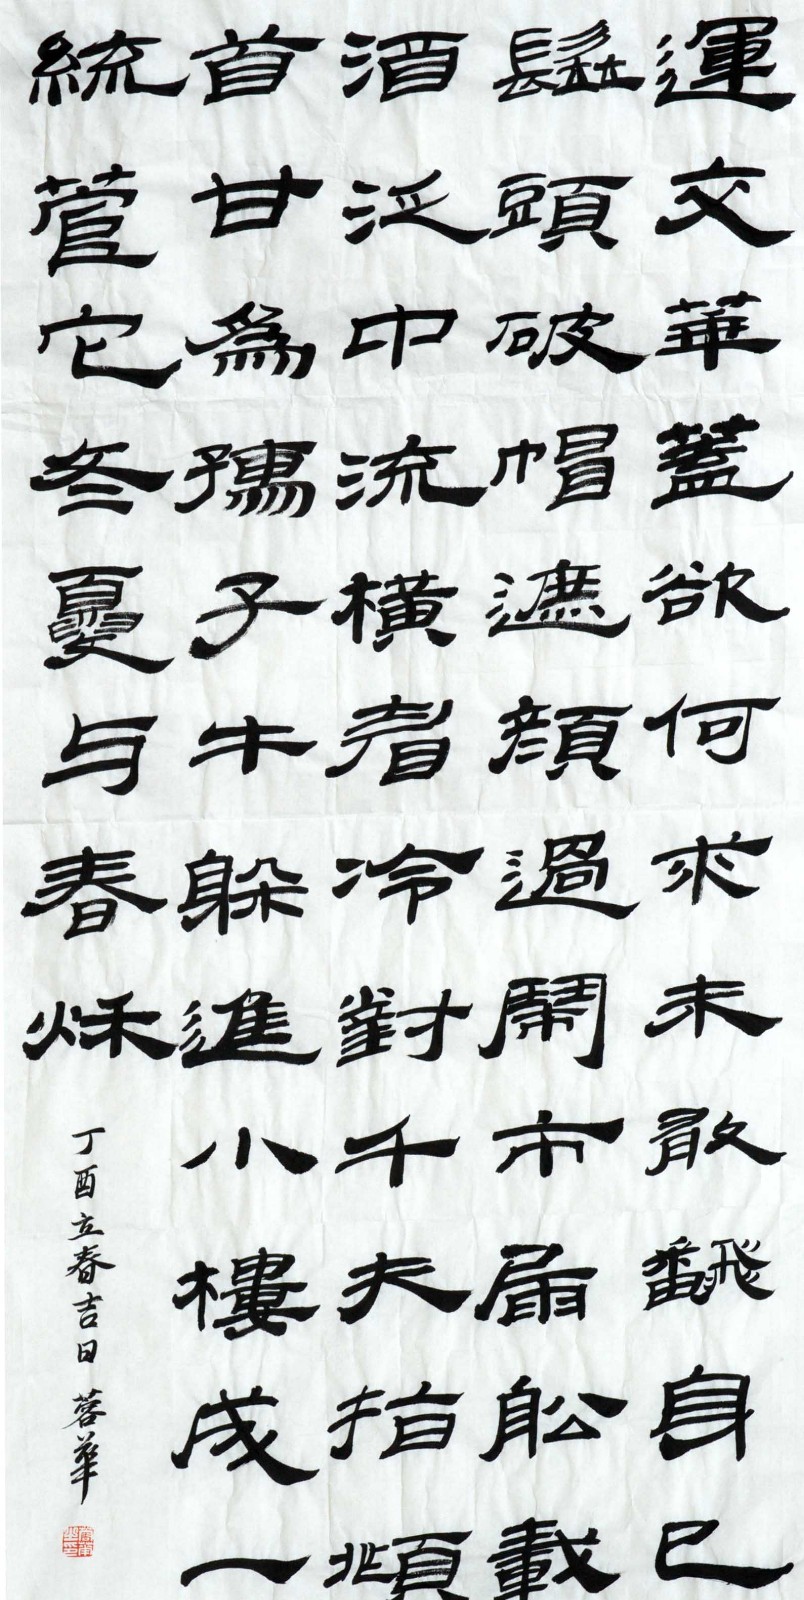 運交華蓋欲何求未敢飜身已
頭破帽遮顔過鬧市屚舩載
酒泛中流橫眉冷對千夫指頫
首甘爲孺子牛躲進小樓成一
統菅它冬夏与春秌
丁酉立春吉日 蓉華